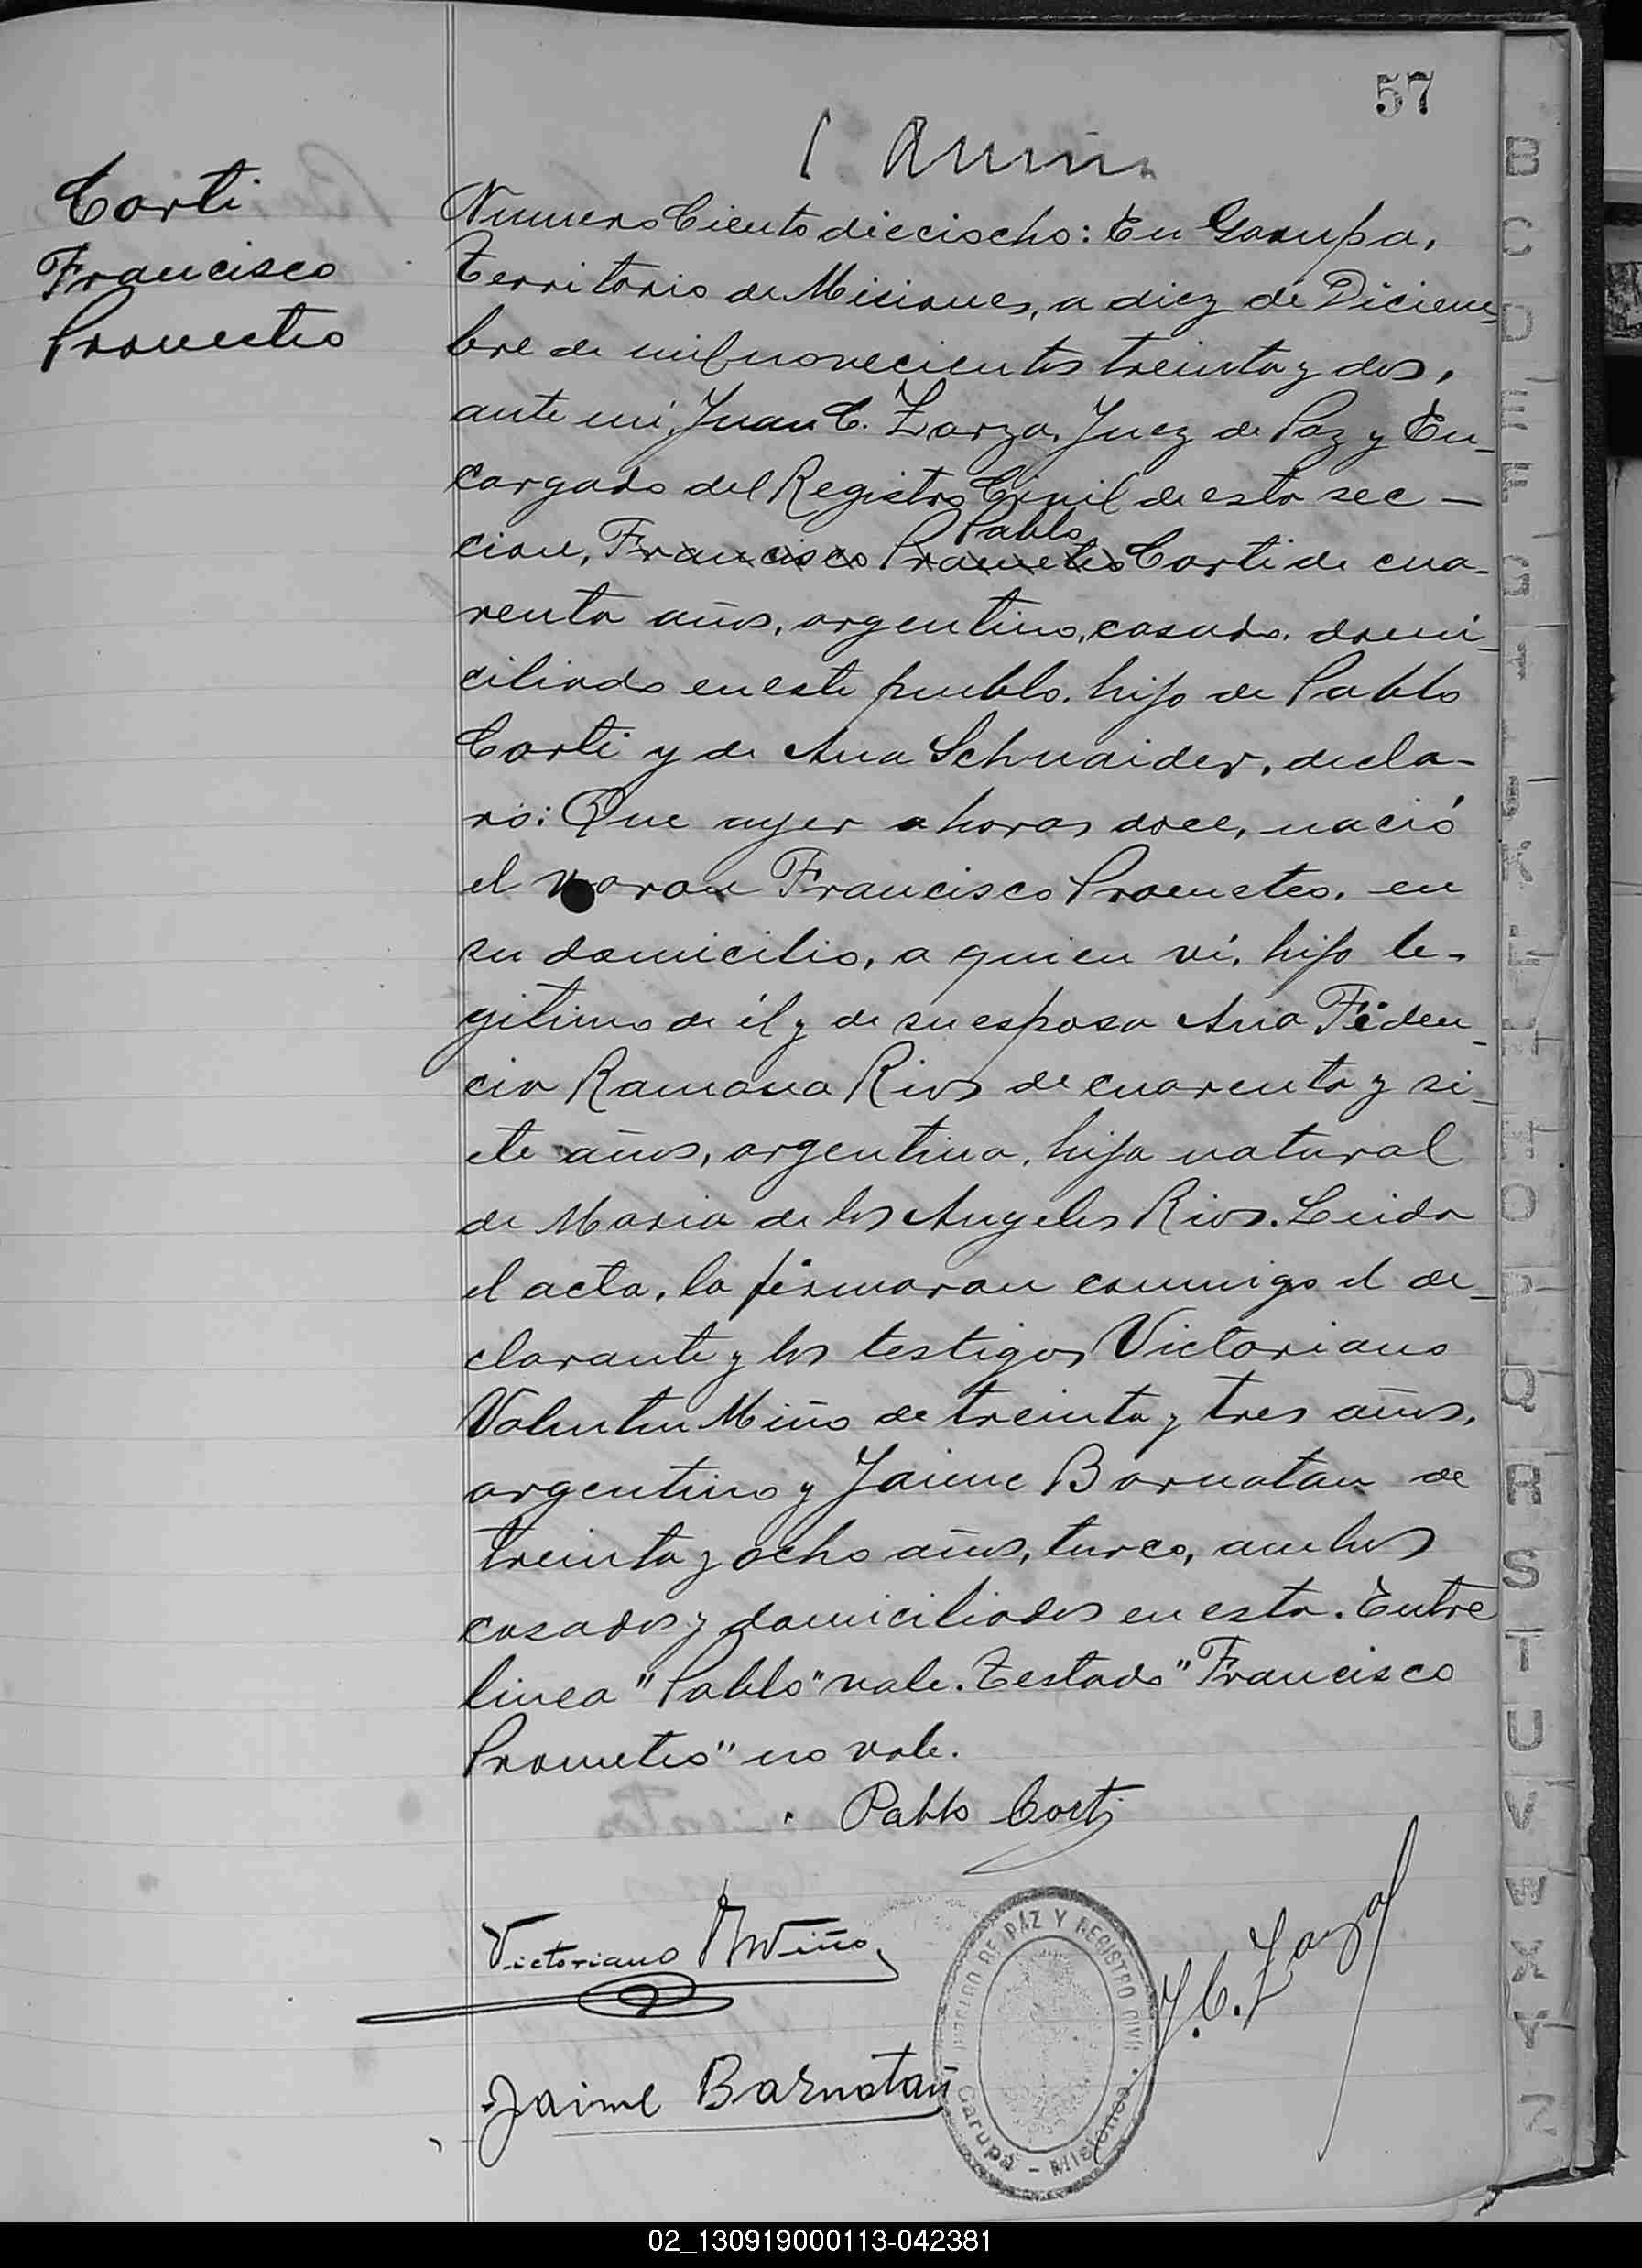 57
Corti
Francisco
Prometeo
Numero Ciento dieciocho: En Garupa,
Territorio de Misiones, a diez de Diciem-
bre de mil novecientos treinta y dos,
ante mi, Juan C. Zarza, Juez de Paz y En-
cargado del Registro Civil de esta sec-
Pablo
cion, Francisco Prometeo Corti de cua-
renta años, argentino, casado, domi-
ciliado en este pueblo, hijo de Pablo
Corti y de Ana Schnaider, decla-
ró: Que ayer a horas doce, nació
el varon Francisco Prometeo, en
su domicilio, a quien ví, hijo le-
gitimo de él y de su esposa Ana Fiden-
cia Ramona Rios de cuarenta y si-
ete años, argentina, hija natural
de Maria de los Angeles Rios. Leida
el acta, la firmaran conmigo el de-
clarante y los testigos Victoriano
Valentin Miño de treinta y tres años,
argentino y Jaime Barnatan de
treinta y ocho años, turco, ambos
casados y domiciliados en esta. Entre
linea "Pablo" vale. Testado "Francisco
Prometeo" no vale.
Pablo Corti
Victoriano V Miño
J. C. Zarza
Jaime Barnatan
JUZGADO DE PAZ Y REGISTRO CIVIL
Garupá - Misiones
B
C
D
E
F
G
H
I
J
K
L
M
N
O
P
Q
R
S
T
U
V
W
X
Y
Z
02_130919000113-042381